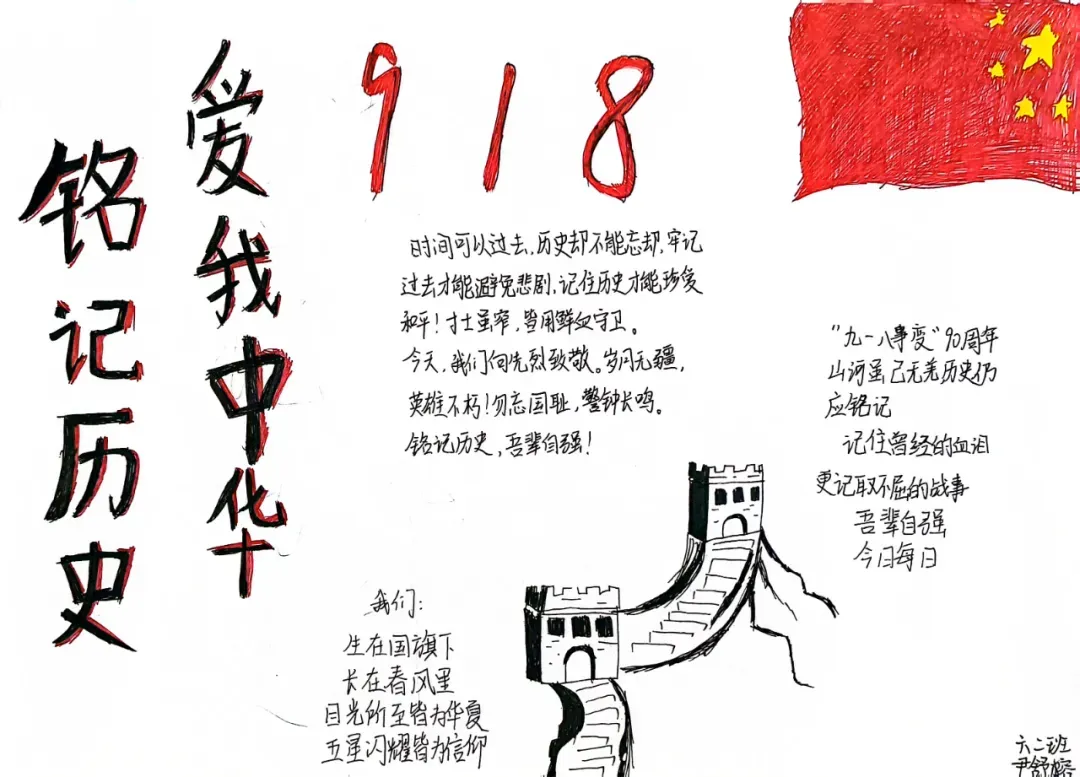 铭记历史
爱我中华
918
时间可以过去,历史却不能忘却,牢记
过去才能避免悲剧,记住历史才能珍爱
和平!寸土虽窄,皆用鲜血守卫。
今天,我们向先烈致敬。岁月无疆,
英雄不朽!勿忘国耻,警钟长鸣。
铭记历史,吾辈自强!
"九一八事变"90周年
山河虽已无恙历史仍
应铭记
记住曾经的血泪
更记取不屈的战事
吾辈自强
今日每日
我们:
生在国旗下
长在春风里
目光所至皆为华夏
五星闪耀皆为信仰
六二班
尹舒